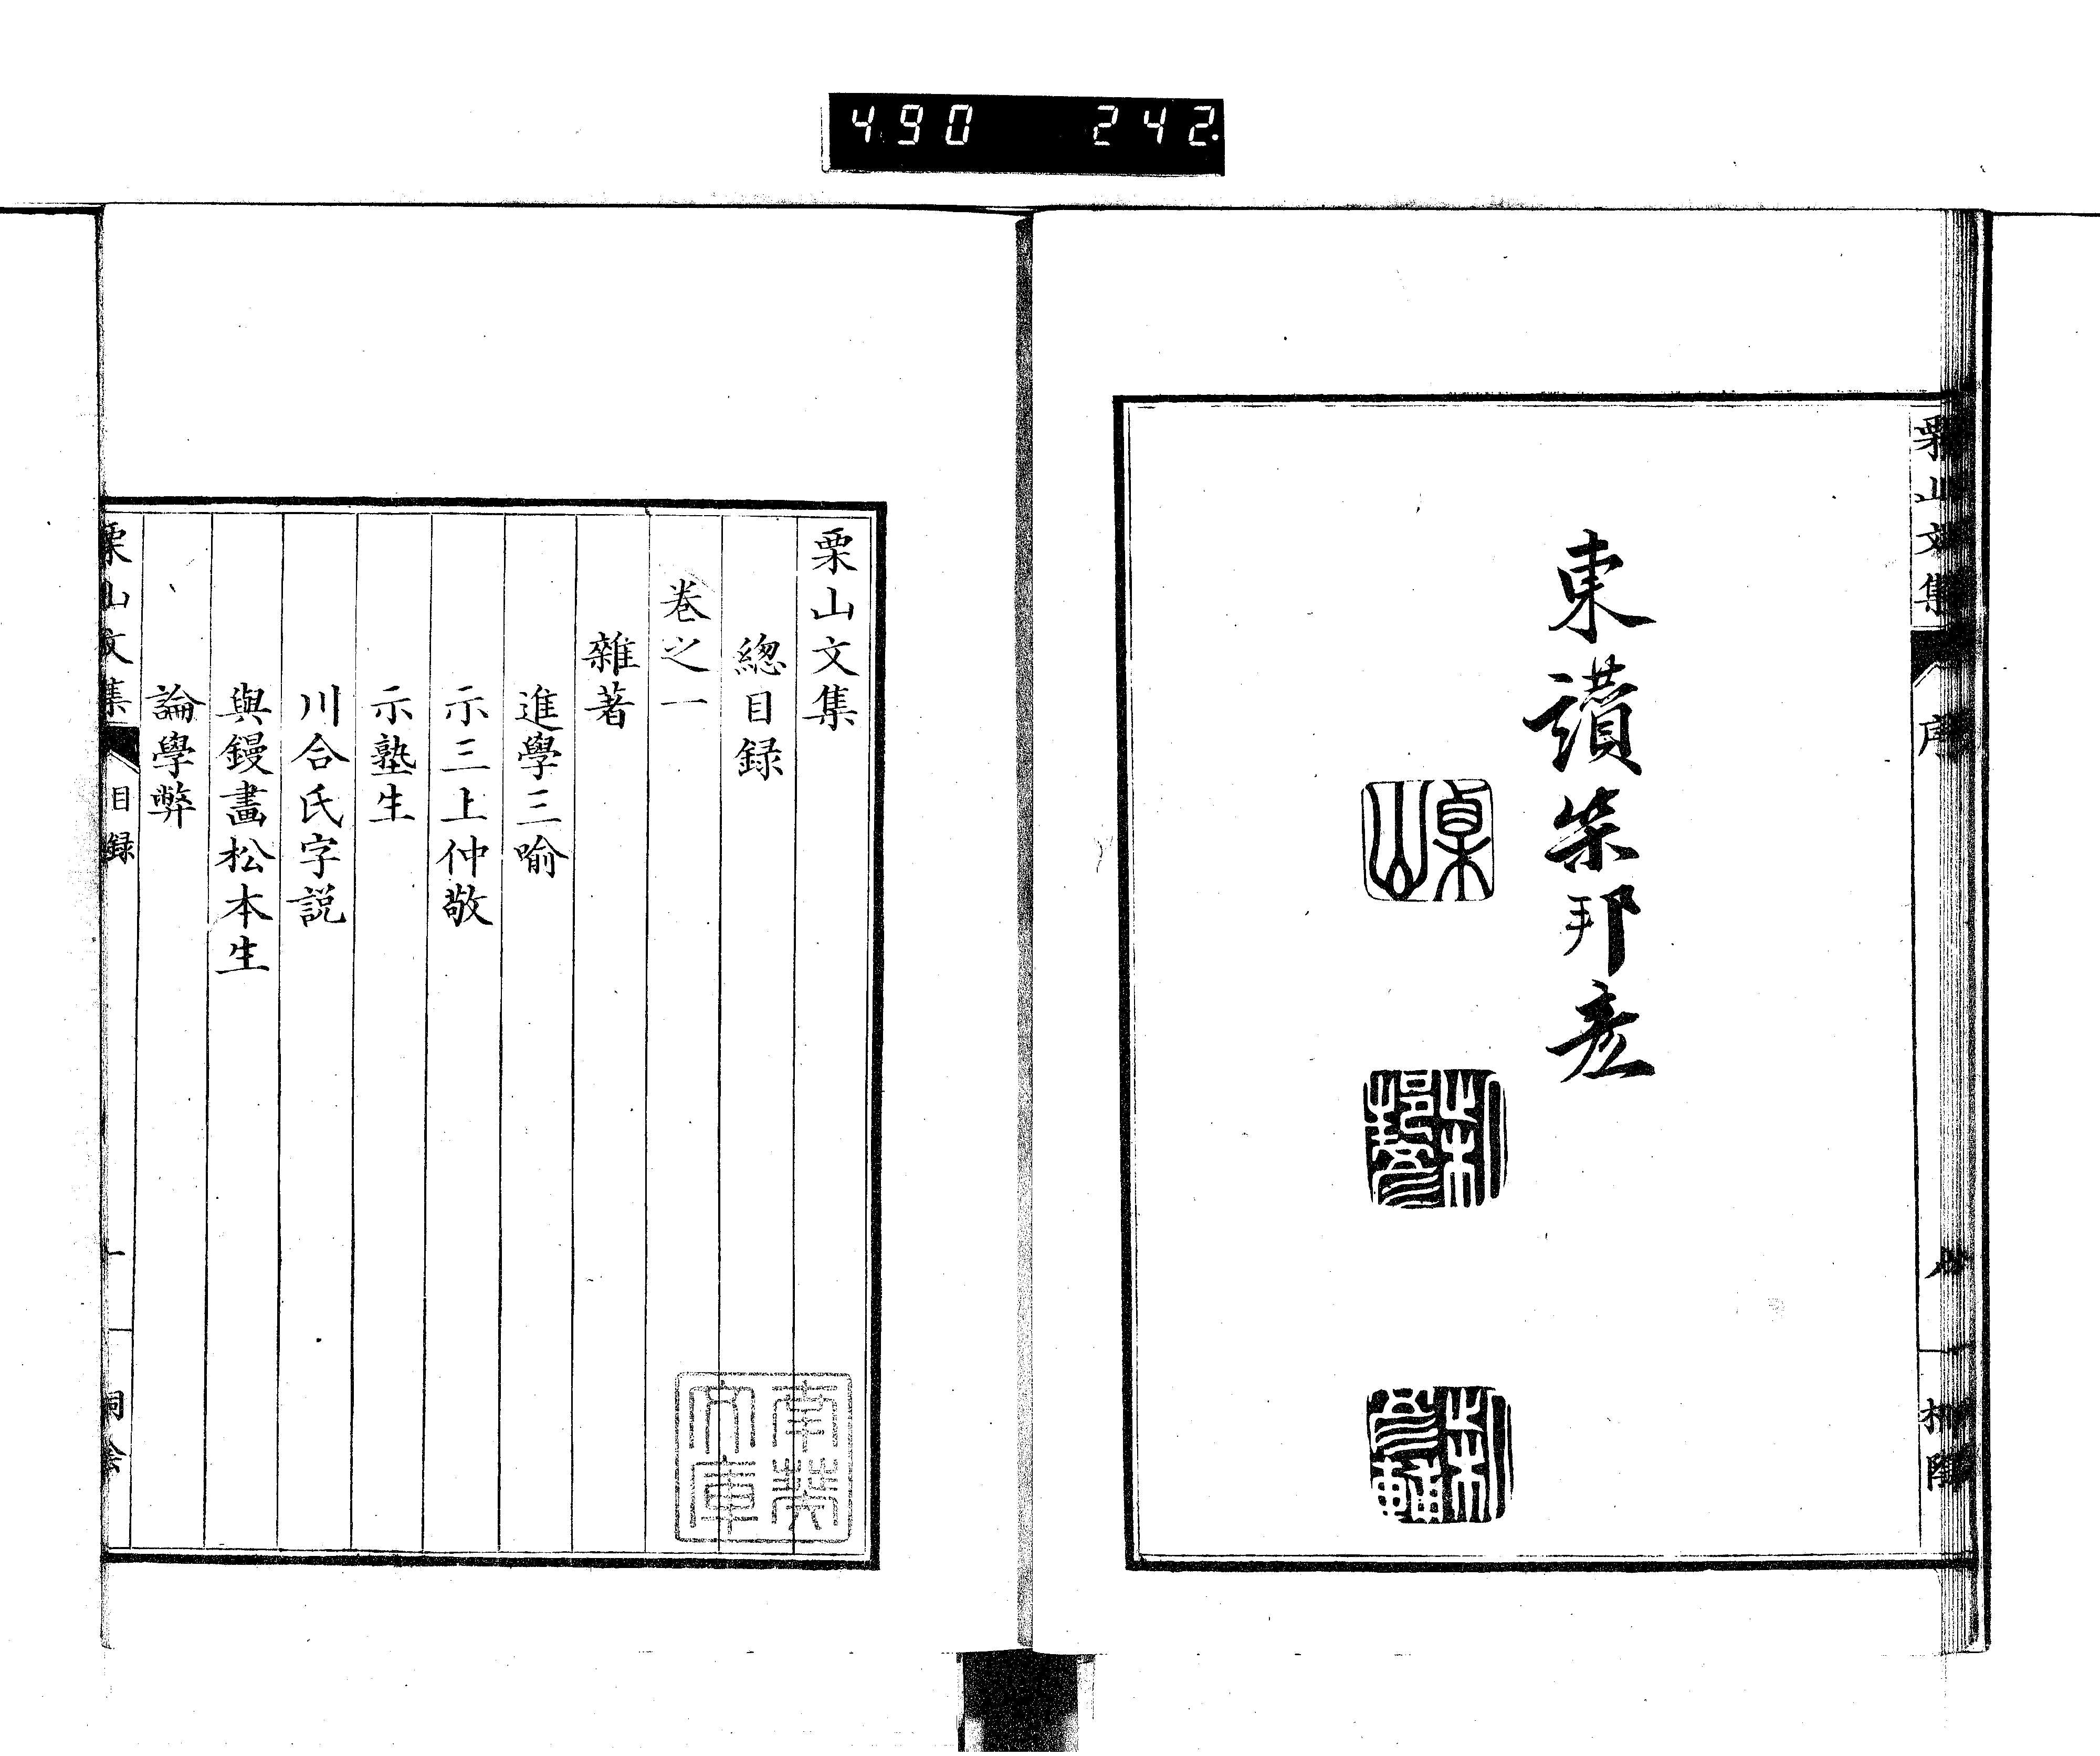 490 242.
栗山文集 序
東讃柴邦彦
栗山
柴邦彦
柴彦輔
栗山文集
總目録
卷之一
雜著
進學三喻
示三上仲敬
示塾生
川合氏字説
與鏝畫松本生
論學弊
栗山文集 目録 一
南葵文庫